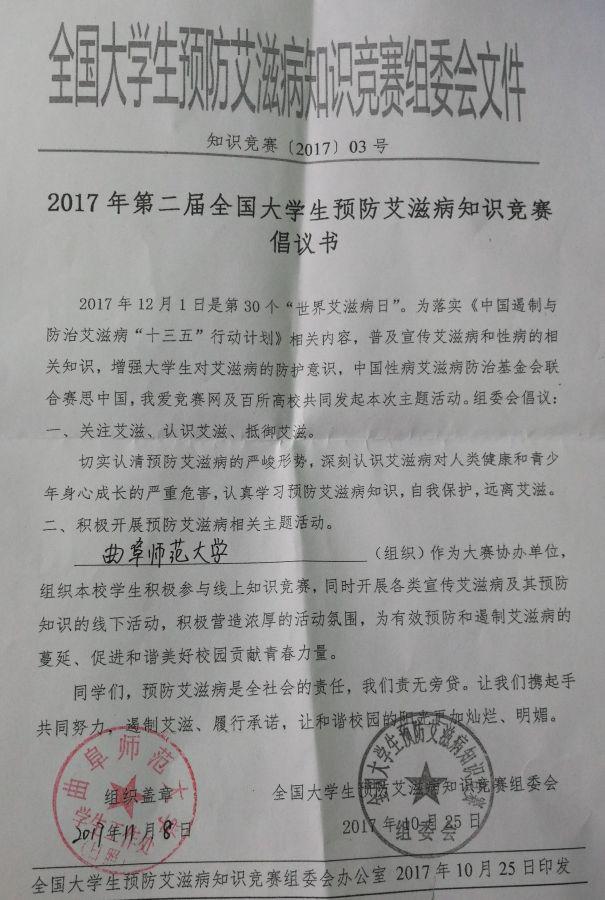 全国大学生预防艾滋病知识竞赛组委会文件
知识竞赛〔2017〕03号
2017年第二届全国大学生预防艾滋病知识竞赛
倡议书
2017年12月1日是第30个“世界艾滋病日”。为落实《中国遏制与
防治艾滋病“十三五”行动计划》相关内容，普及宣传艾滋病和性病的相
关知识，增强大学生对艾滋病的防护意识，中国性病艾滋病防治基金会联
合赛思中国，我爱竞赛网及百所高校共同发起本次主题活动。组委会倡议：
一、关注艾滋、认识艾滋、抵御艾滋。
切实认清预防艾滋病的严峻形势，深刻认识艾滋病对人类健康和青少
年身心成长的严重危害，认真学习预防艾滋病知识，自我保护，远离艾滋。
二、积极开展预防艾滋病相关主题活动。
曲阜师范大学（组织）作为大赛协办单位，
组织本校学生积极参与线上知识竞赛，同时开展各类宣传艾滋病及其预防
知识的线下活动，积极营造浓厚的活动氛围，为有效预防和遏制艾滋病的
蔓延、促进和谐美好校园贡献青春力量。
同学们，预防艾滋病是全社会的责任，我们责无旁贷。让我们携起手
共同努力，遏制艾滋、履行承诺，让和谐校园的阳光更加灿烂、明媚。
曲阜师范大学
学生工作处
组织盖章
2017年11月8日
全国大学生预防艾滋病知识竞赛
组委会
全国大学生预防艾滋病知识竞赛组委会
2017年10月25日
全国大学生预防艾滋病知识竞赛组委会办公室 2017年10月25日印发